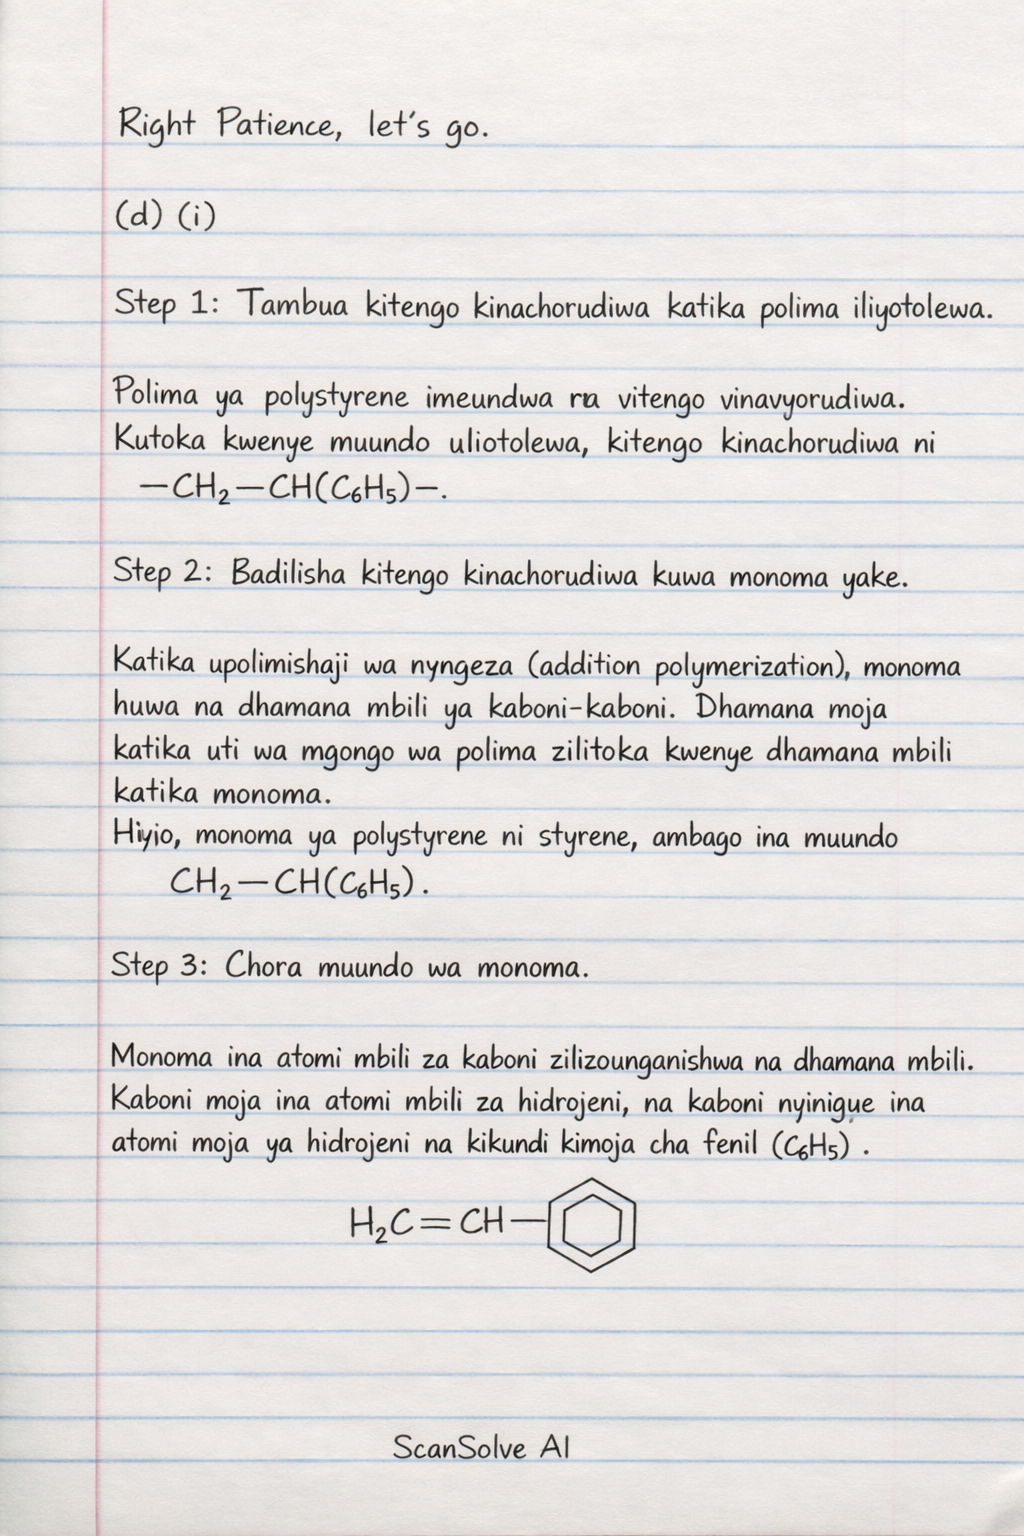 Right Patience, let's go.
(d) (i)
Step 1: Tambua kitengo kinachorudiwa katika polima iliyotolewa.
Polima ya polystyrene imeundwa na vitengo vinavyorudiwa.
Kutoka kwenye muundo uliotolewa, kitengo kinachorudiwa ni
—CH₂—CH(C₆H₅)—.
Step 2: Badilisha kitengo kinachorudiwa kuwa monoma yake.
Katika upolimishaji wa nyngeza (addition polymerization), monoma
huwa na dhamana mbili ya kaboni-kaboni. Dhamana moja
katika uti wa mgongo wa polima zilitoka kwenye dhamana mbili
katika monoma.
Hiyio, monoma ya polystyrene ni styrene, ambago ina muundo
CH₂—CH(C₆H₅).
Step 3: Chora muundo wa monoma.
Monoma ina atomi mbili za kaboni zilizounganishwa na dhamana mbili.
Kaboni moja ina atomi mbili za hidrojeni, na kaboni nyinigue ina
atomi moja ya hidrojeni na kikundi kimoja cha fenil (C₆H₅).
H₂C=CH—
ScanSolve AI